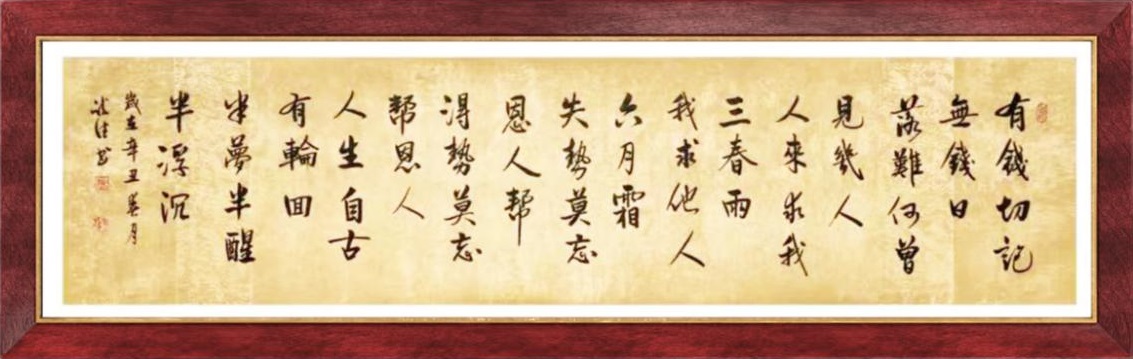 有錢切記
無錢日
落難何曾
見幾人
人來求我
三春雨
我求他人
六月霜
失勢莫忘
恩人幫
得勢莫忘
幫恩人
人生自古
有輪回
半夢半醒
半浮沉
歲在辛丑